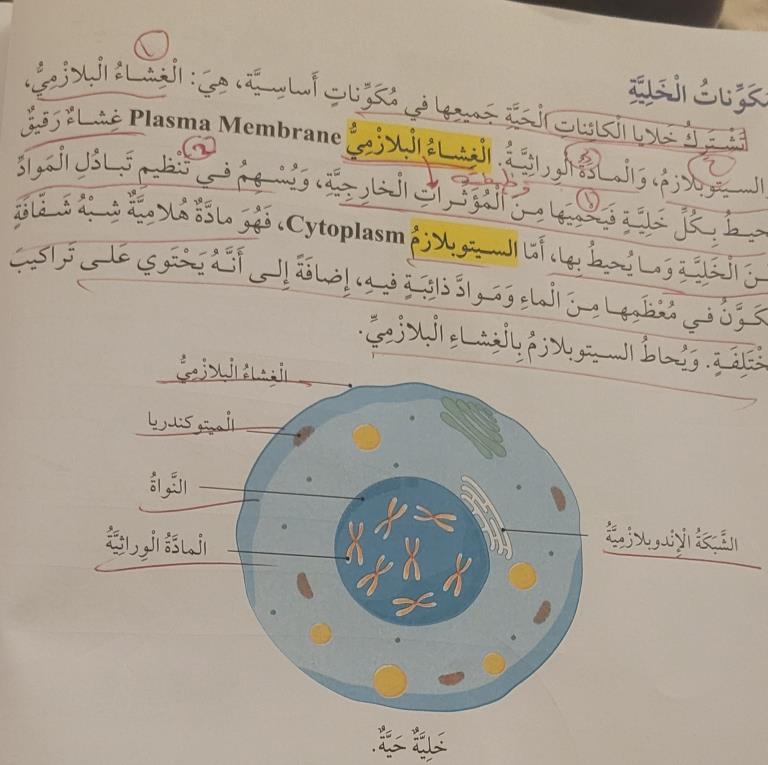 مُكَوِّناتُ الْخَلِيَّةِ
تَشْتَرِكُ خَلايا الْكائناتِ الْحَيَّةِ جَميعِها في مُكَوِّناتٍ أَساسِيَّةٍ، هِيَ: الْغِشاءُ الْبلازْمِيُّ،
السيتوبلازمُ، وَالْمادَّةُ الْوِراثِيَّةُ. الْغِشاءُ الْبلازْمِيُّ Plasma Membrane غِشاءٌ رَقيقٌ
يُحيطُ بِكُلِّ خَلِيَّةٍ فَيَحْمِيَها مِنَ الْمُؤَثِّراتِ الْخارِجِيَّةِ، وَيُسْهِمُ في تَنْظيمِ تَبادُلِ الْمَوادِّ
الْخَلِيَّةِ وَما يُحيطُ بِها، أَمّا السيتوبلازمُ Cytoplasm، فَهُوَ مادَّةٌ هُلامِيَّةٌ شِبْهُ شَفّافَةٍ
في مُعْظَمِها مِنَ الْماءِ وَمَوادَّ ذائِبَةٍ فيهِ، إِضافَةً إِلى أَنَّهُ يَحْتَوي عَلى تَراكيبَ
مُخْتَلِفَةٍ. وَيُحاطُ السيتوبلازمُ بِالْغِشاءِ الْبلازْمِيِّ.
١
٢
٣
١
٢
وظيفته
الْغِشاءُ الْبلازْمِيُّ
الْميتوكندريا
النَّواةُ
الْمادَّةُ الْوِراثِيَّةُ
الشَّبَكَةُ الْإِنْدوبلازْمِيَّةُ
خَلِيَّةٌ حَيَّةٌ.